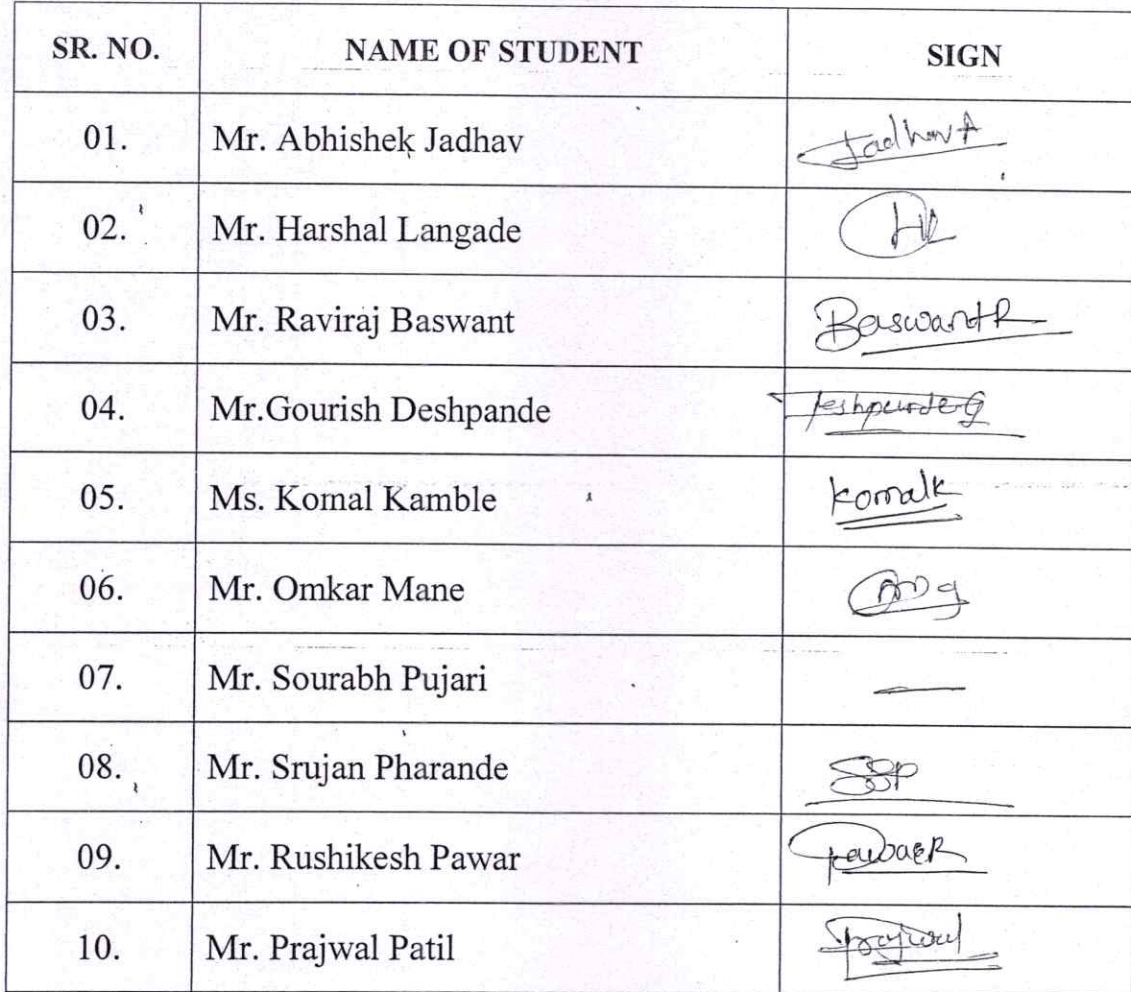 SR. NO. NAME OF STUDENT SIGN
01. Mr. Abhishek Jadhav JadhavA
02. Mr. Harshal Langade HL
03. Mr. Raviraj Baswant BaswantR
04. Mr.Gourish Deshpande DeshpandeG
05. Ms. Komal Kamble KomalK
06. Mr. Omkar Mane
07. Mr. Sourabh Pujari —
08. Mr. Srujan Pharande SSP
09. Mr. Rushikesh Pawar PawarR
10. Mr. Prajwal Patil Prajwal